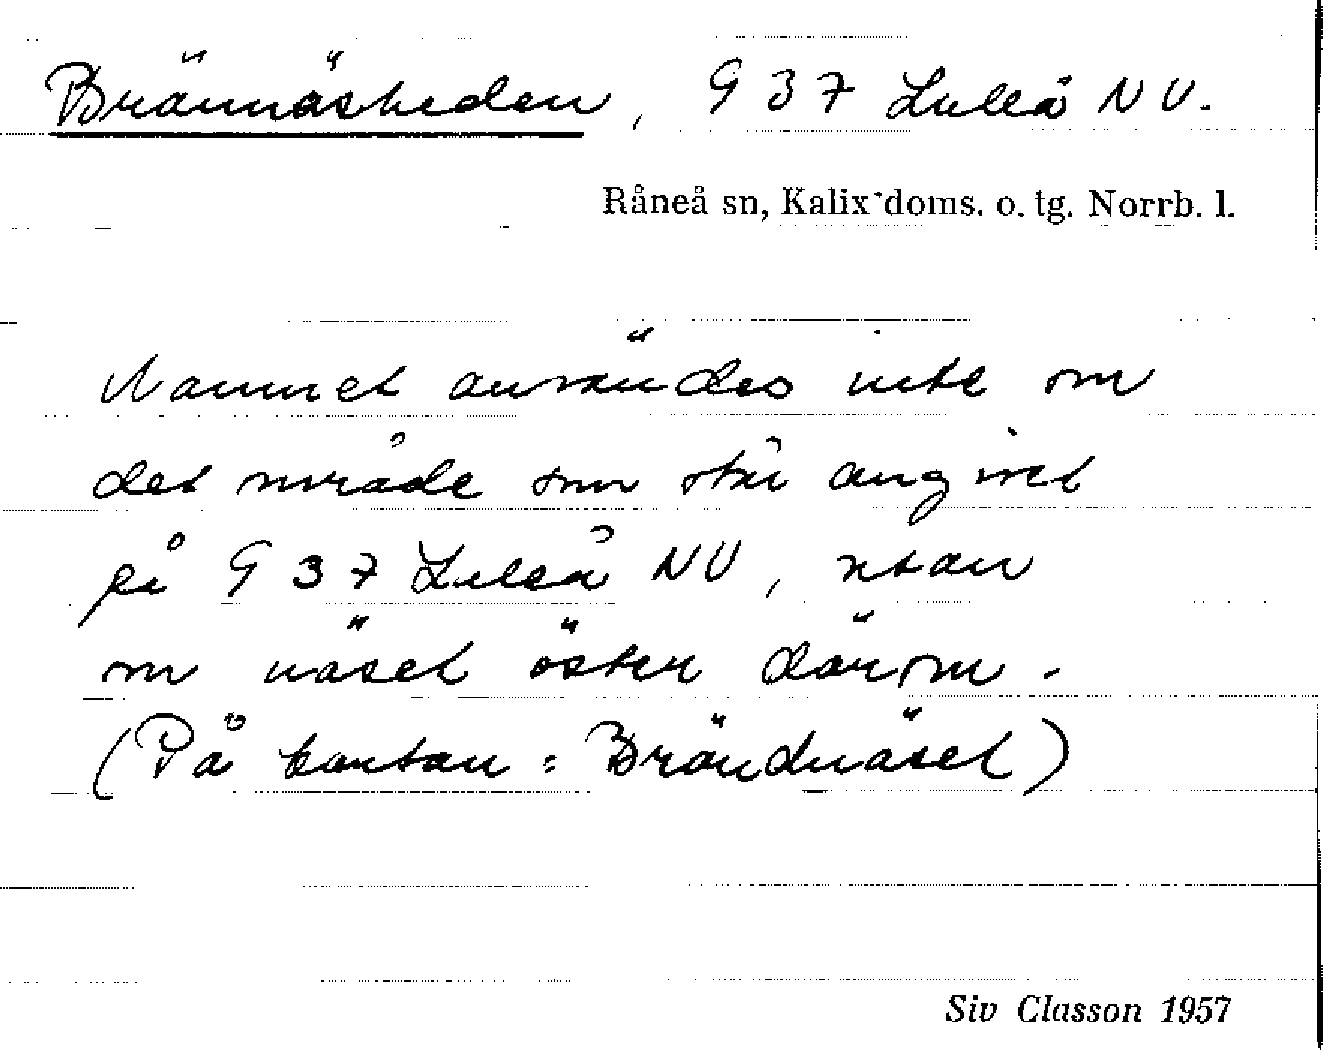 Brännäsheden, G 37 Luleå NV.
Råneå sn, Kalix doms. o. tg. Norrb. l.
Namnet användes inte om
det område som står angivet
på G 37 Luleå NV, utan
om näset öster därom.
(På kartan: Brändnäset)
Siv Classon 1957